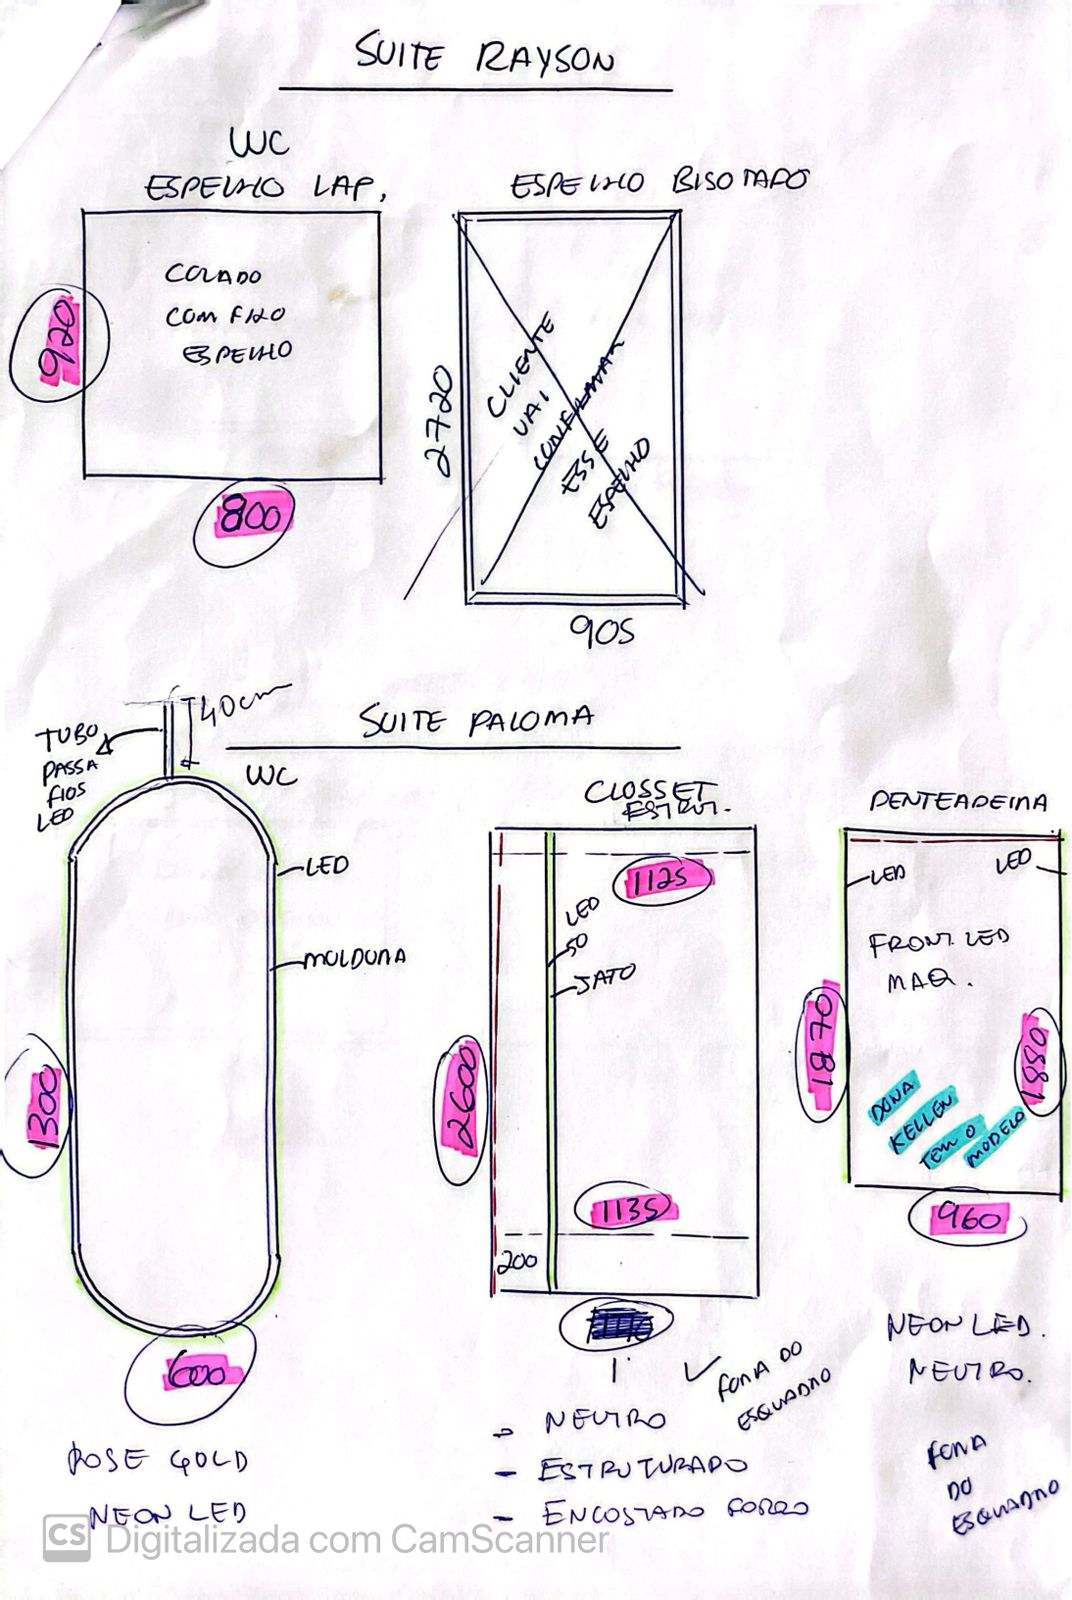 SUITE RAYSON
WC
ESPELHO LAP.
COLADO
COM FIXO
ESPELHO
920
800
ESPELHO BISOTADO
CLIENTE
VAI
CONFIRMAR
ESSE
ESPELHO
2720
905
SUITE PALOMA
WC
40cm
TUBO
PASSA
FIOS
LED
LED
MOLDURA
1300
600
ROSE GOLD
NEON LED
CLOSSET
ESTRUT.
1125
LED
50
JATO
2600
1135
200
FORA DO
ESQUADRO
- NEUTRO
- ESTRUTURADO
- ENCOSTADO FORRO
PENTEADEIRA
LED
LED
FRONT. LED
MAQ.
1870
1880
DONA
KELLEN
TEM O
MODELO
960
NEON LED.
NEUTRO.
FORA
DO
ESQUADRO
CS Digitalizada com CamScanner